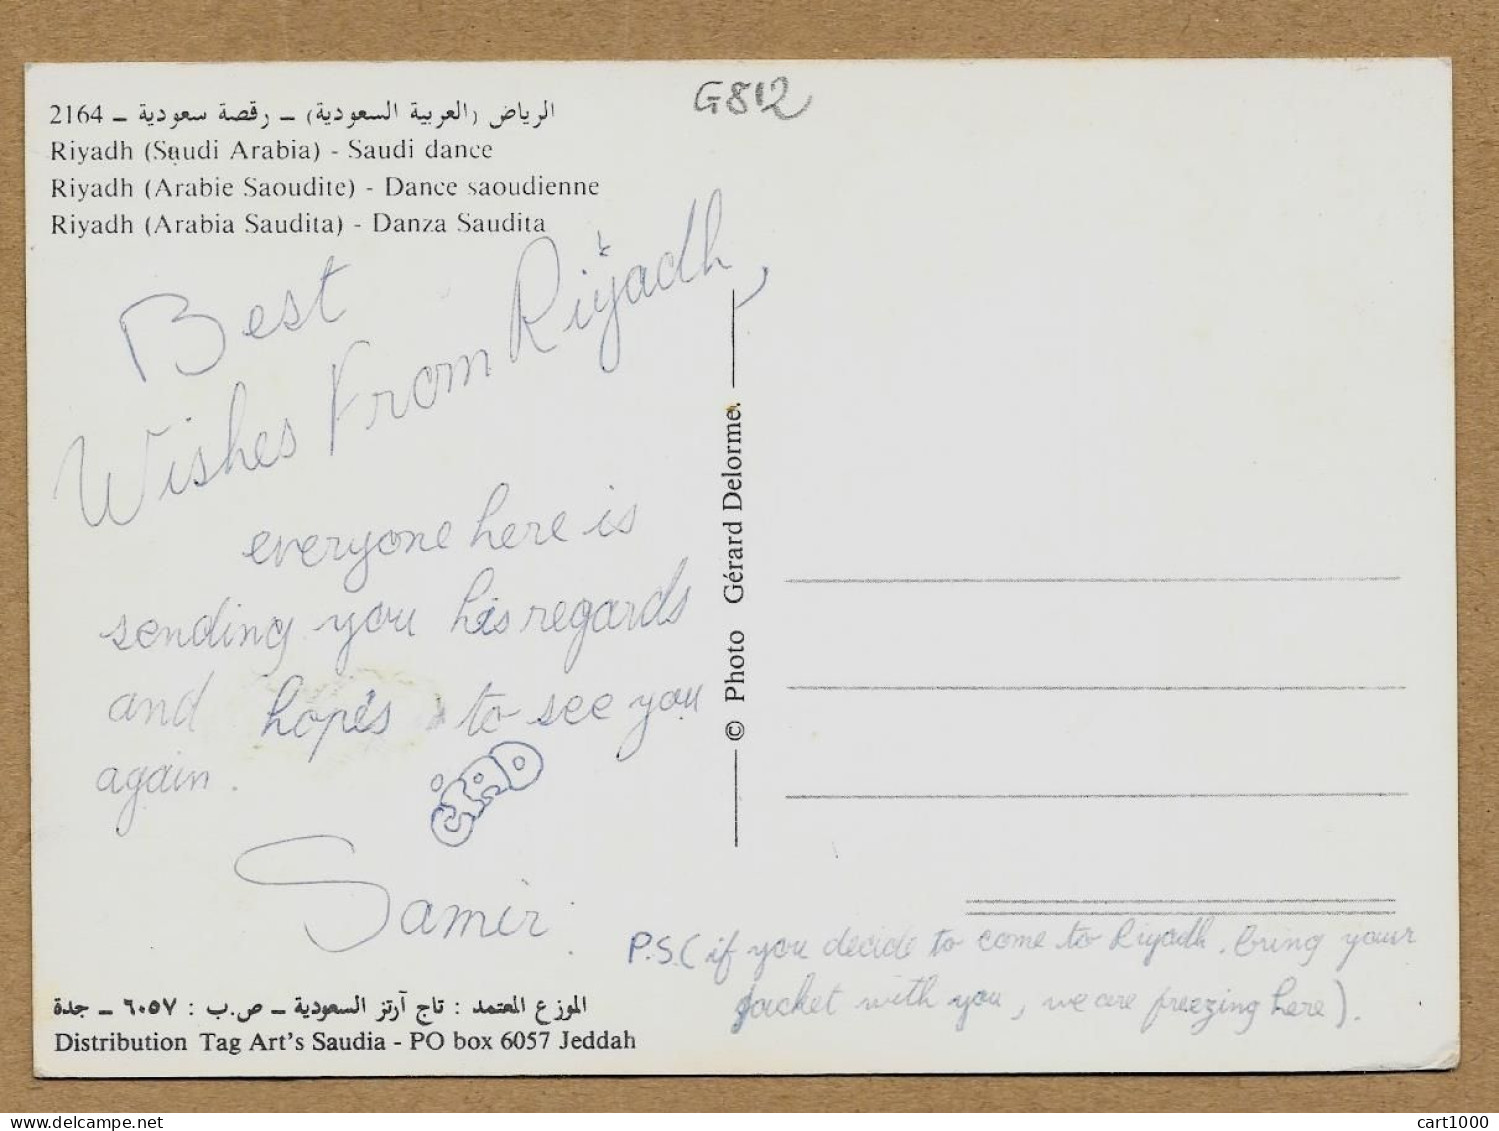 G812
الرياض (العربية السعودية) – رقصة سعودية – 2164
Riyadh (Saudi Arabia) - Saudi dance
Riyadh (Arabie Saoudite) - Dance saoudienne
Riyadh (Arabia Saudita) - Danza Saudita
Best
Wishes From Riyadh,
everyone here is
sending you his regards
and hopes to see you
again.
Samir.
P.S. (if you decide to come to Riyadh. bring your
jacket with you, we are freezing here).
© Photo Gérard Delorme.
الموزع المعتمد : تاج آرتز السعودية – ص.ب : ٦٠٥٧ – جدة
Distribution Tag Art's Saudia - PO box 6057 Jeddah
cart.marino@gmail.com
cart1000